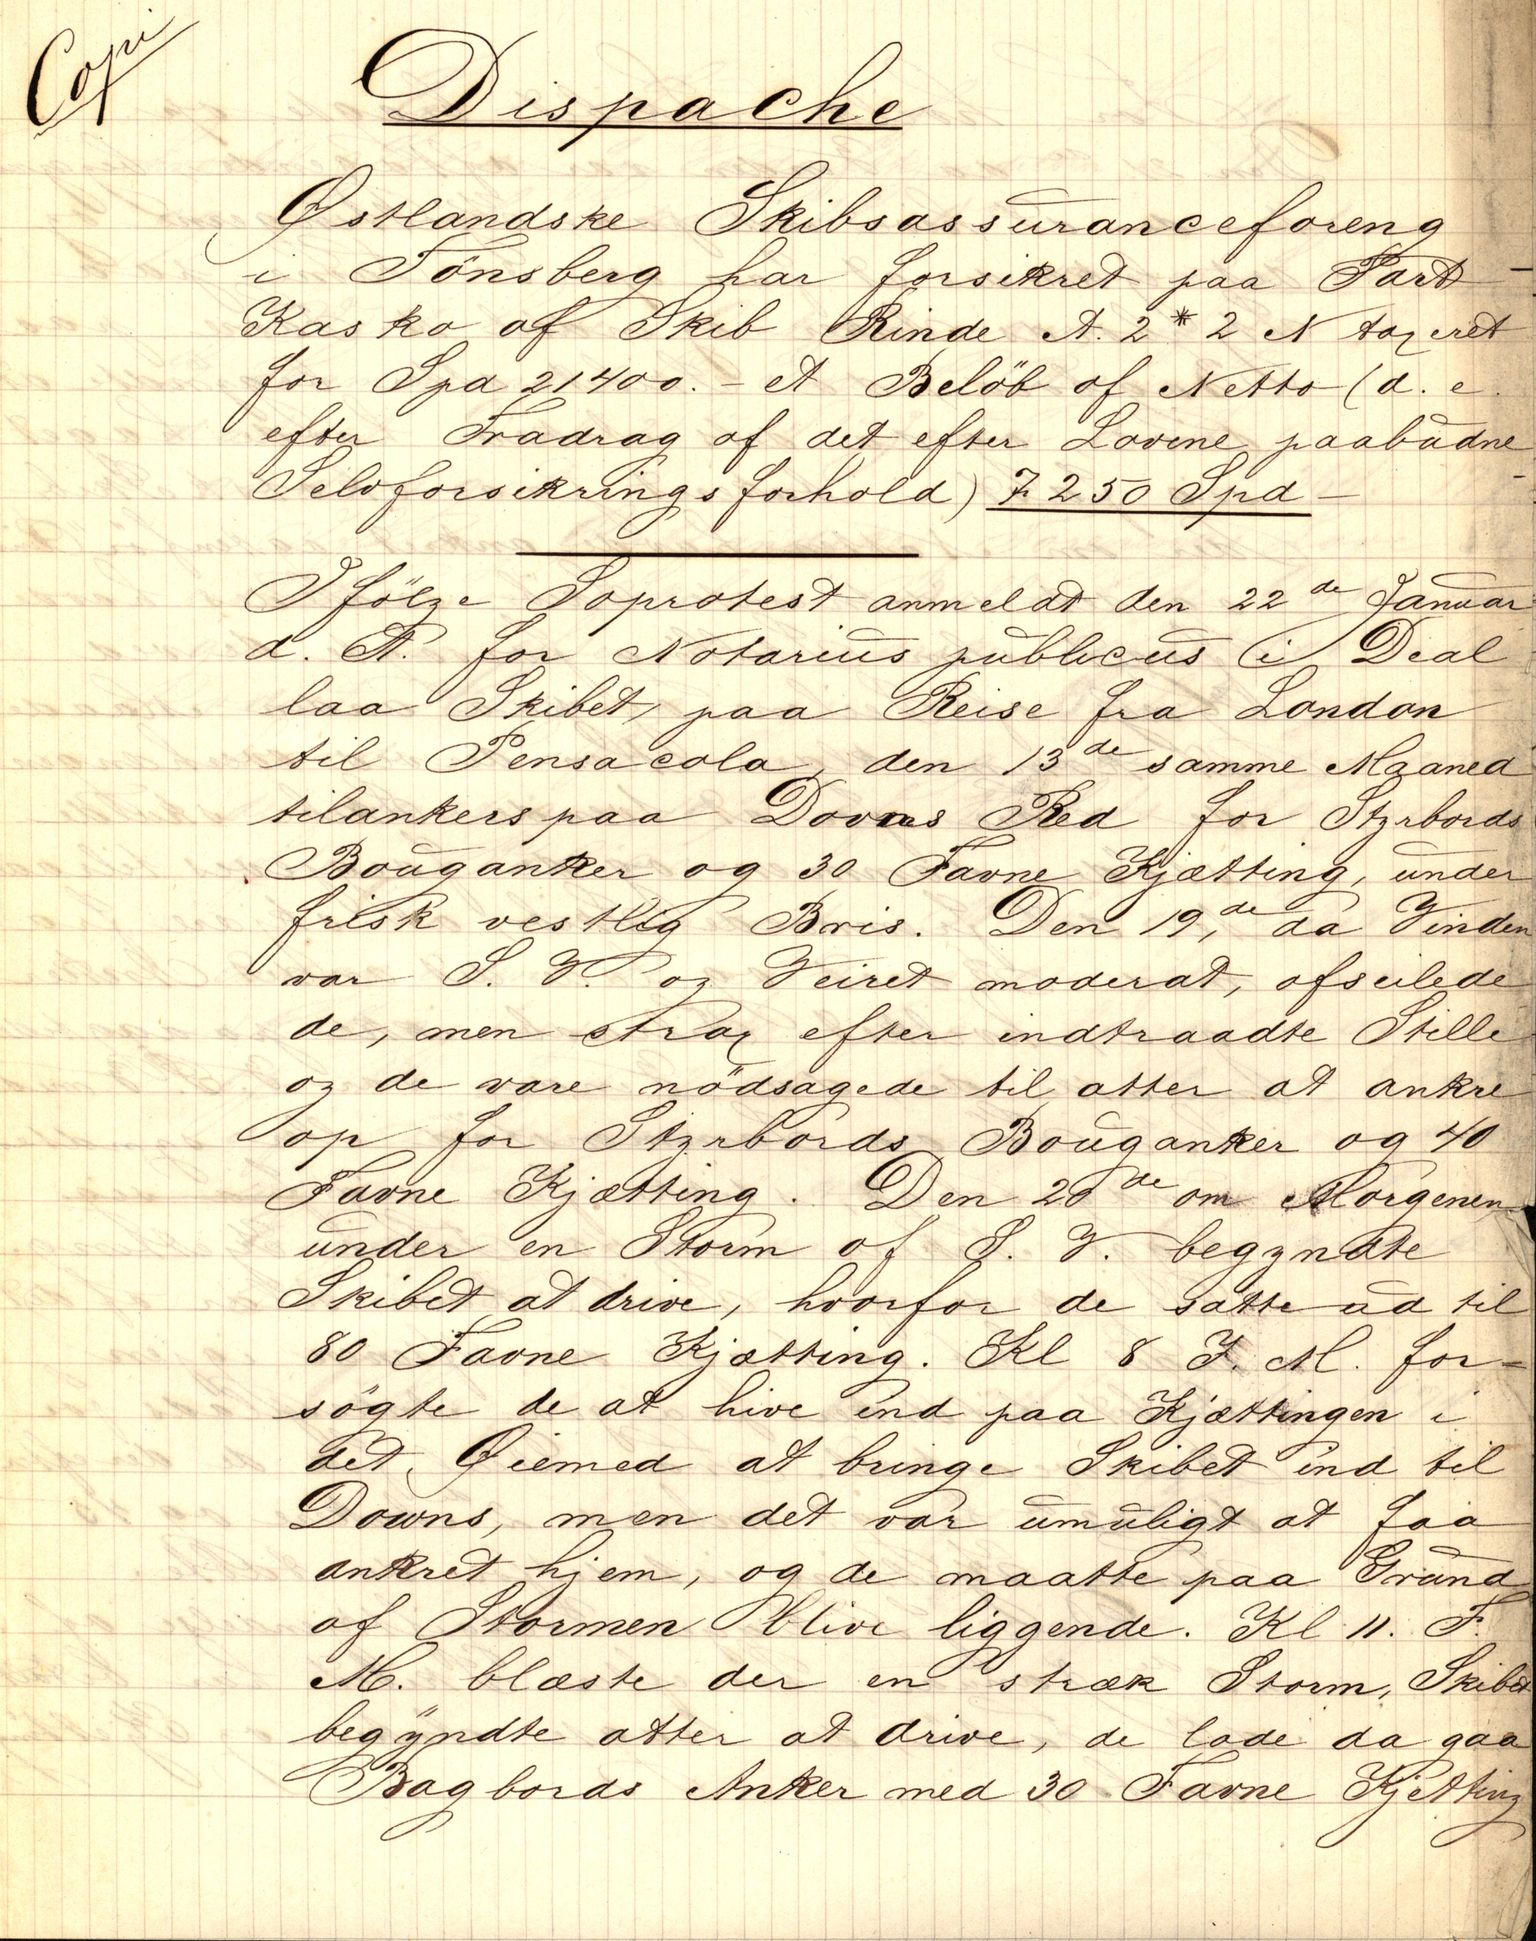 Copi
Dispache
Østlandske Skibsassuranceforeng
i Tönsberg har forsikret paa Part
Kasko af Skib Rinde A. 2 * 2 N taxeret
for Spd 21400. – et Belöb af Netto (d. e.
efter Fradrag af det efter Lovene paabudne
Selvforsikringsforhold) 7250 Spd –
Ifölge Söprotest anmeldt den 22de Januar
d. A. for Notarius publicus i Deal
laa Skibet, paa Reise fra London
til Pensacola, den 13de samme Maaned
tilankers paa Downs Red for Styrbords
Bouganker og 30 Favne Kjætting, under
frisk vestlig Bris. Den 19de, da Vinden
var S. V. og Veiret moderat, afseilede
de, men strax efter indtraadte Stille
og de vare nödsagede til atter at ankre
op for Styrbords Bouganker og 40
Favne Kjætting. Den 20de om Morgenen
under en Storm af S. V. begyndte
Skibet at drive, hvorfor de satte ud til
80 Favne Kjætting. Kl 8 F. M. for-
sögte de at hive ind paa Kjættingen i
det Øiemed at bringe Skibet ind til
Downs, men det var umuligt at faa
ankret hjem, og de maatte paa Grund
af Stormen blive liggende. Kl 11. F.
M. blæste der en stræk Storm, Skibet
begyndte atter at drive, de lode da gaa
Bagbords Anker med 30 Favne Kjætting